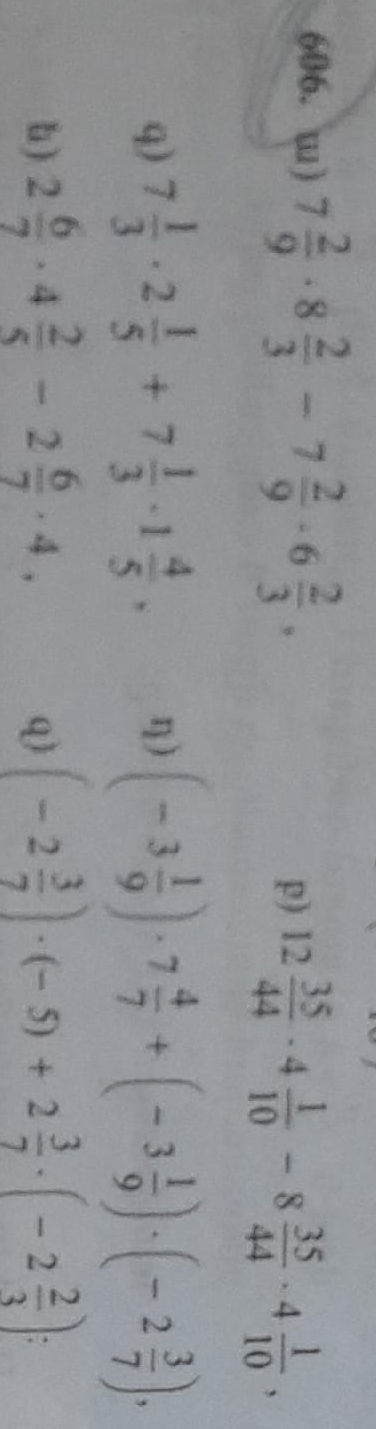 606. ա) 7 2/9 · 8 2/3 − 7 2/9 · 6 2/3, բ) 12 35/44 · 4 1/10 − 8 35/44 · 4 1/10,
գ) 7 1/3 · 2 1/5 + 7 1/3 · 1 4/5, դ) (− 3 1/9) · 7 4/7 + (− 3 1/9) · (− 2 3/7),
ե) 2 6/7 · 4 2/5 − 2 6/7 · 4, զ) (− 2 3/7) · (− 5) + 2 3/7 · (− 2 2/3):